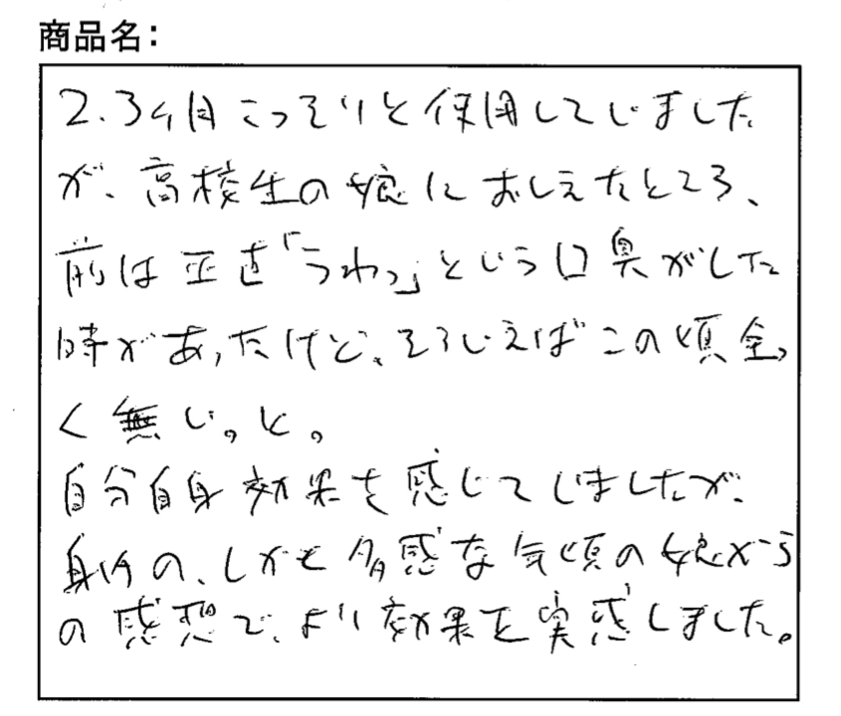 商品名：
2.3ヶ月こっそりと使用していました
が、高校生の娘におしえたところ、
前は正直「うわっ」という口臭がした
時があったけど、そういえばこの頃全
く無い。と。
自分自身効果を感じていましたが、
身内の、しかも多感な年頃の娘から
の感想で、より効果を実感しました。